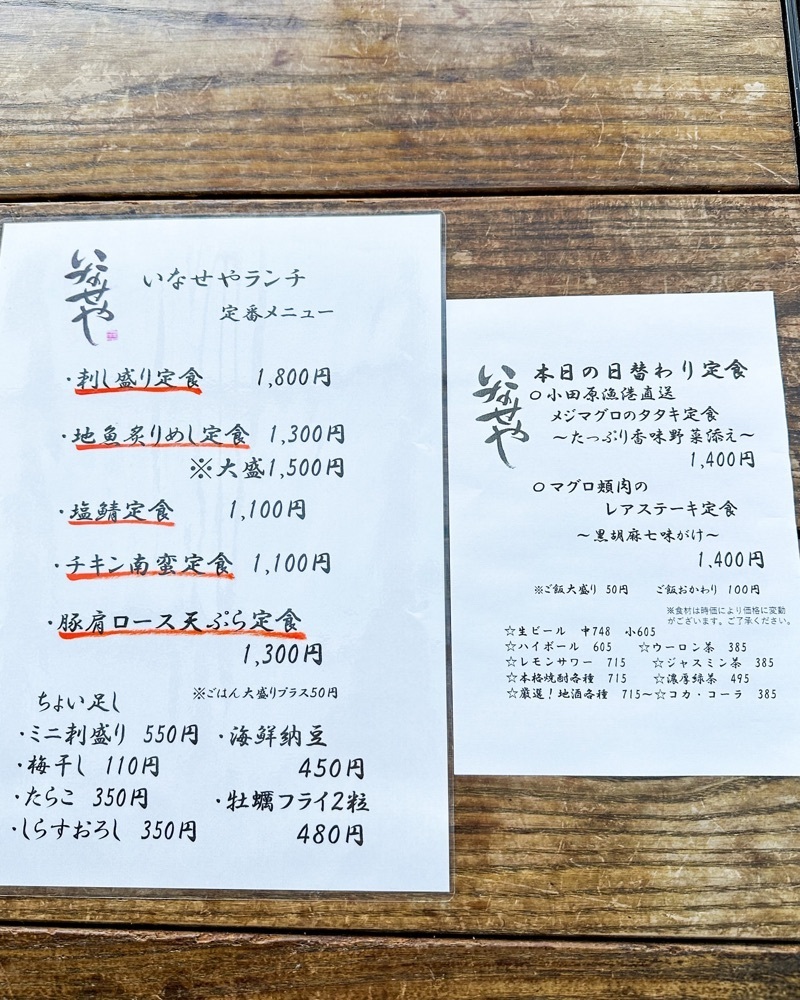 いなせや
いなせやランチ
定番メニュー
・刺し盛り定食 1,800円
・地魚炙りめし定食 1,300円
※大盛1,500円
・塩鯖定食 1,100円
・チキン南蛮定食 1,100円
・豚肩ロース天ぷら定食
1,300円
※ごはん大盛りプラス50円
ちょい足し
・ミニ刺盛り 550円
・梅干し 110円
・たらこ 350円
・しらすおろし 350円
・海鮮納豆
450円
・牡蠣フライ2粒
480円
いなせや
本日の日替わり定食
○小田原漁港直送
メジマグロのタタキ定食
～たっぷり香味野菜添え～
1,400円
○マグロ頬肉の
レアステーキ定食
～黒胡麻七味がけ～
1,400円
※ご飯大盛り 50円 ご飯おかわり 100円
※食材は時価により価格に変動
がございます。ご了承ください。
☆生ビール 中748 小605
☆ハイボール 605 ☆ウーロン茶 385
☆レモンサワー 715 ☆ジャスミン茶 385
☆本格焼酎各種 715 ☆濃厚緑茶 495
☆厳選！地酒各種 715～☆コカ・コーラ 385